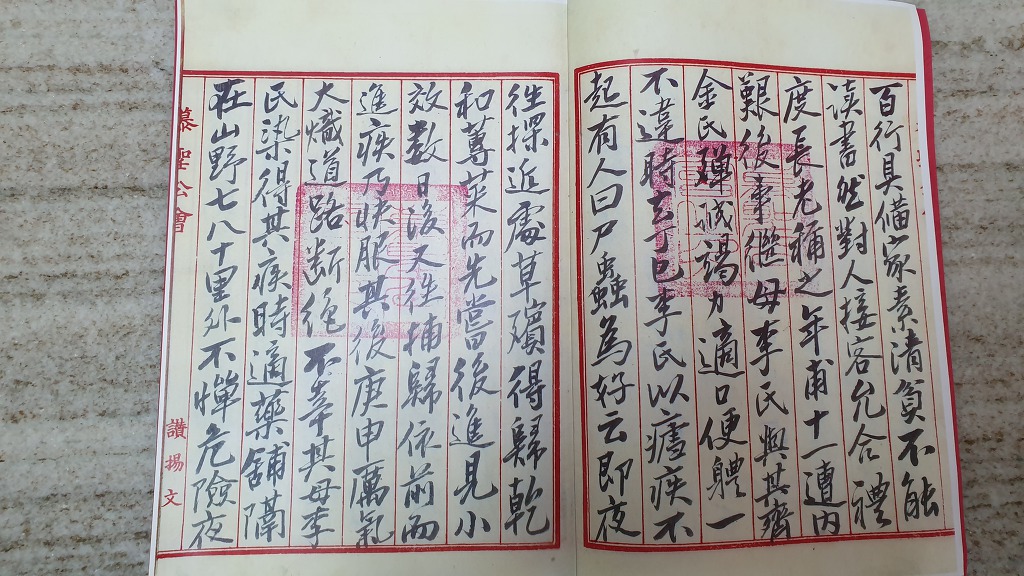 百行具備家素清貧不能
读書然對人接客允合禮
度長老稱之年甫十一遭内
艱後事繼母李氏與其齊
金氏殫誠竭力適口便體一
不違時去丁巳李氏以瘧疾不
起有人曰尸蟲為好云即夜
徃探近處草殯得歸乾
和蓴菜而先嘗後進見小
效数日後又徃捕歸依前而
進疾乃快服其後庚申厲氣
大熾道路断絶不幸其母李
民染得其疾時適藥舖隔
在山野七八十里外不憚危險夜
慕聖公會
讃揚文